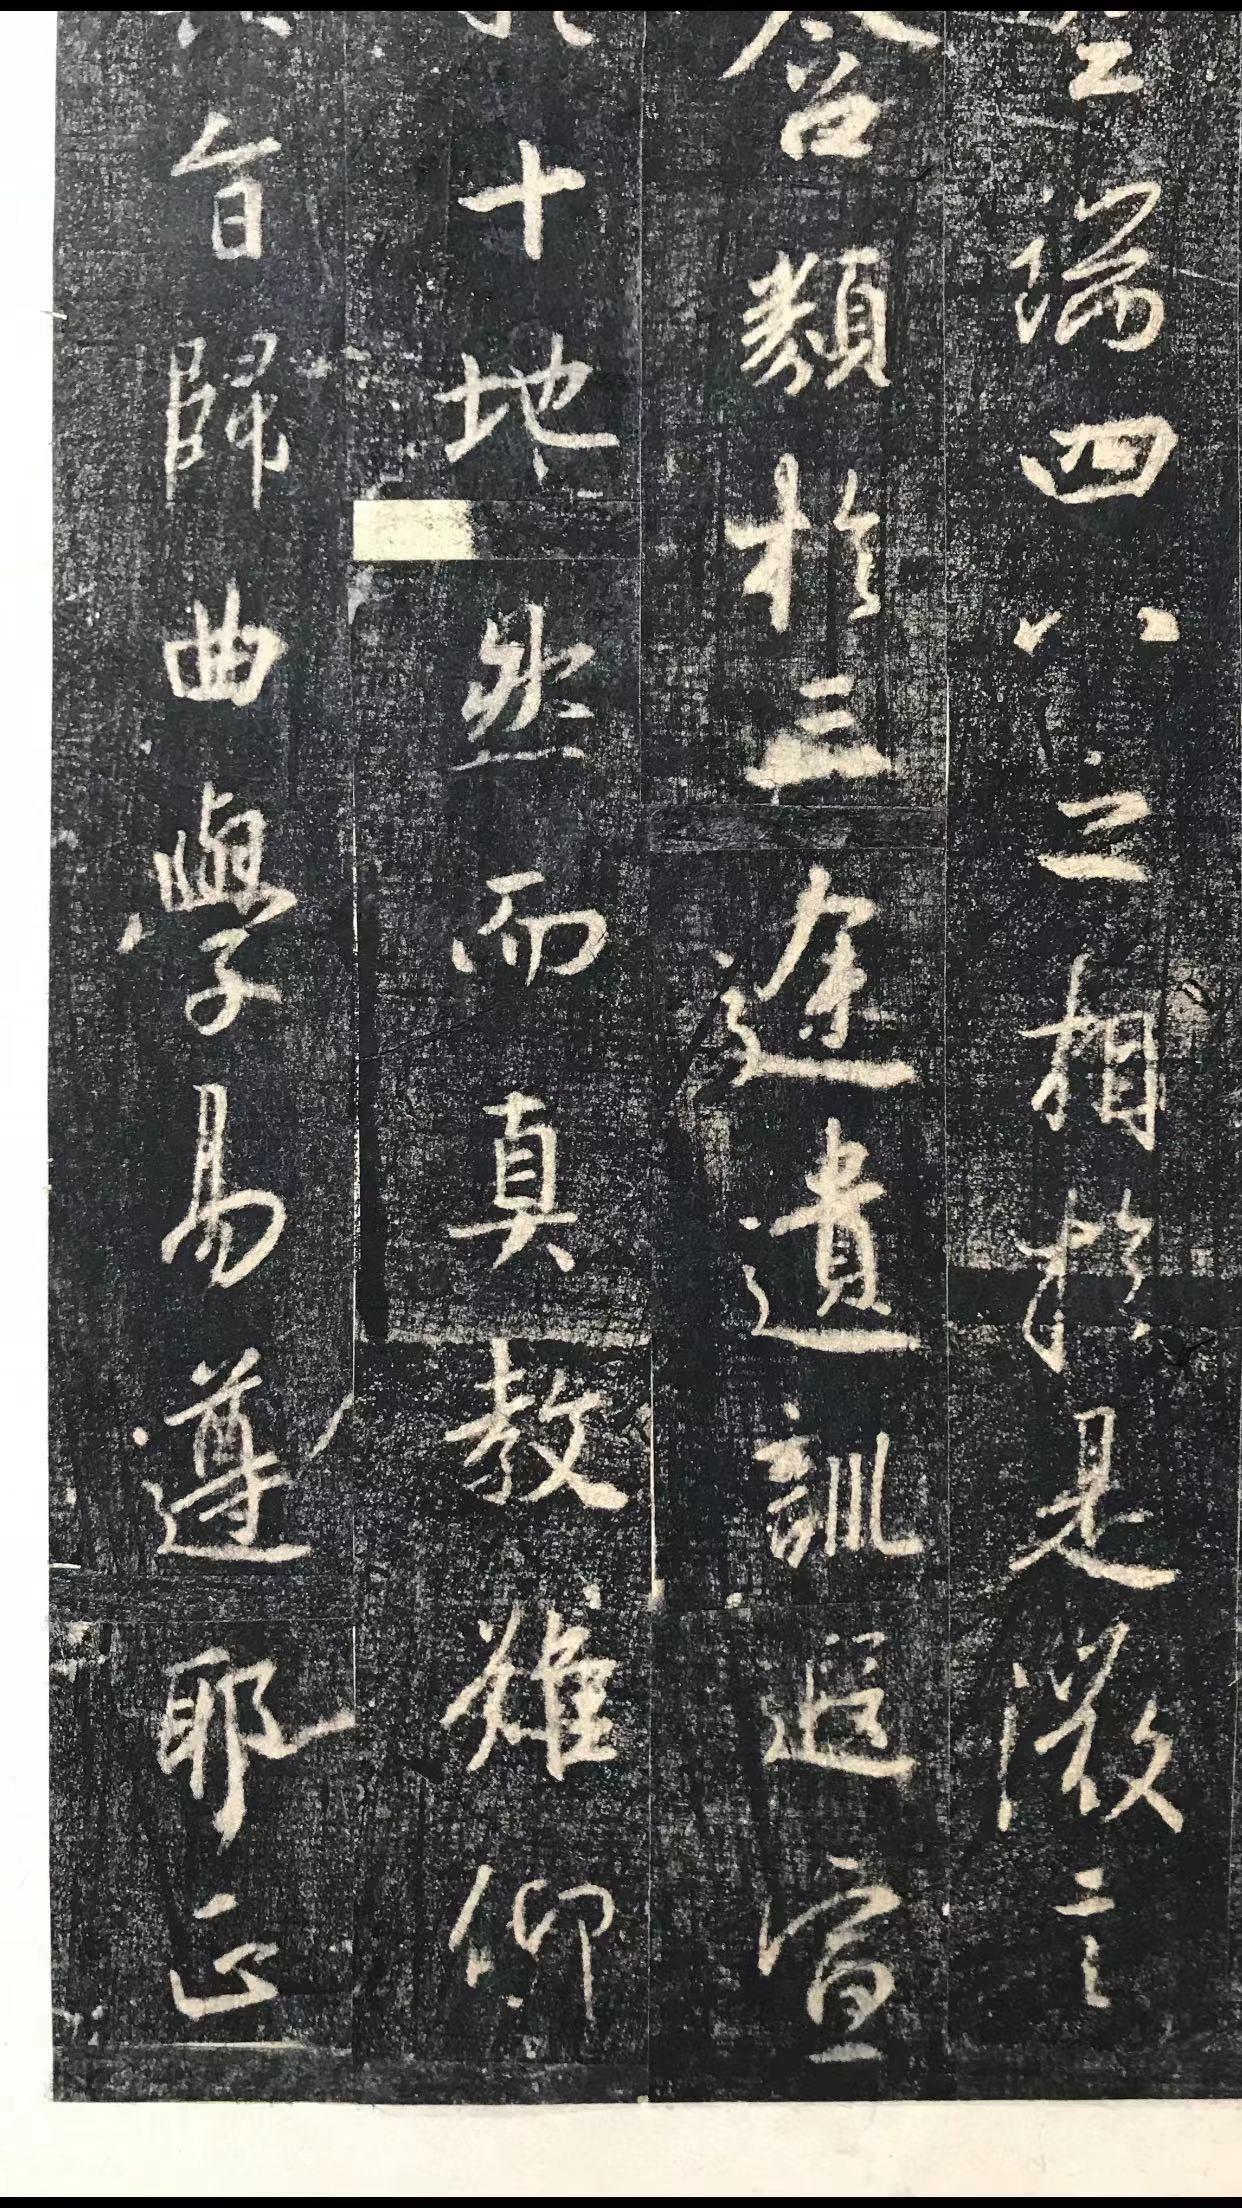 端四八之相於是微言
含類於三途遺訓遐宣
十地然而真教難仰
旨歸曲學易遵耶正